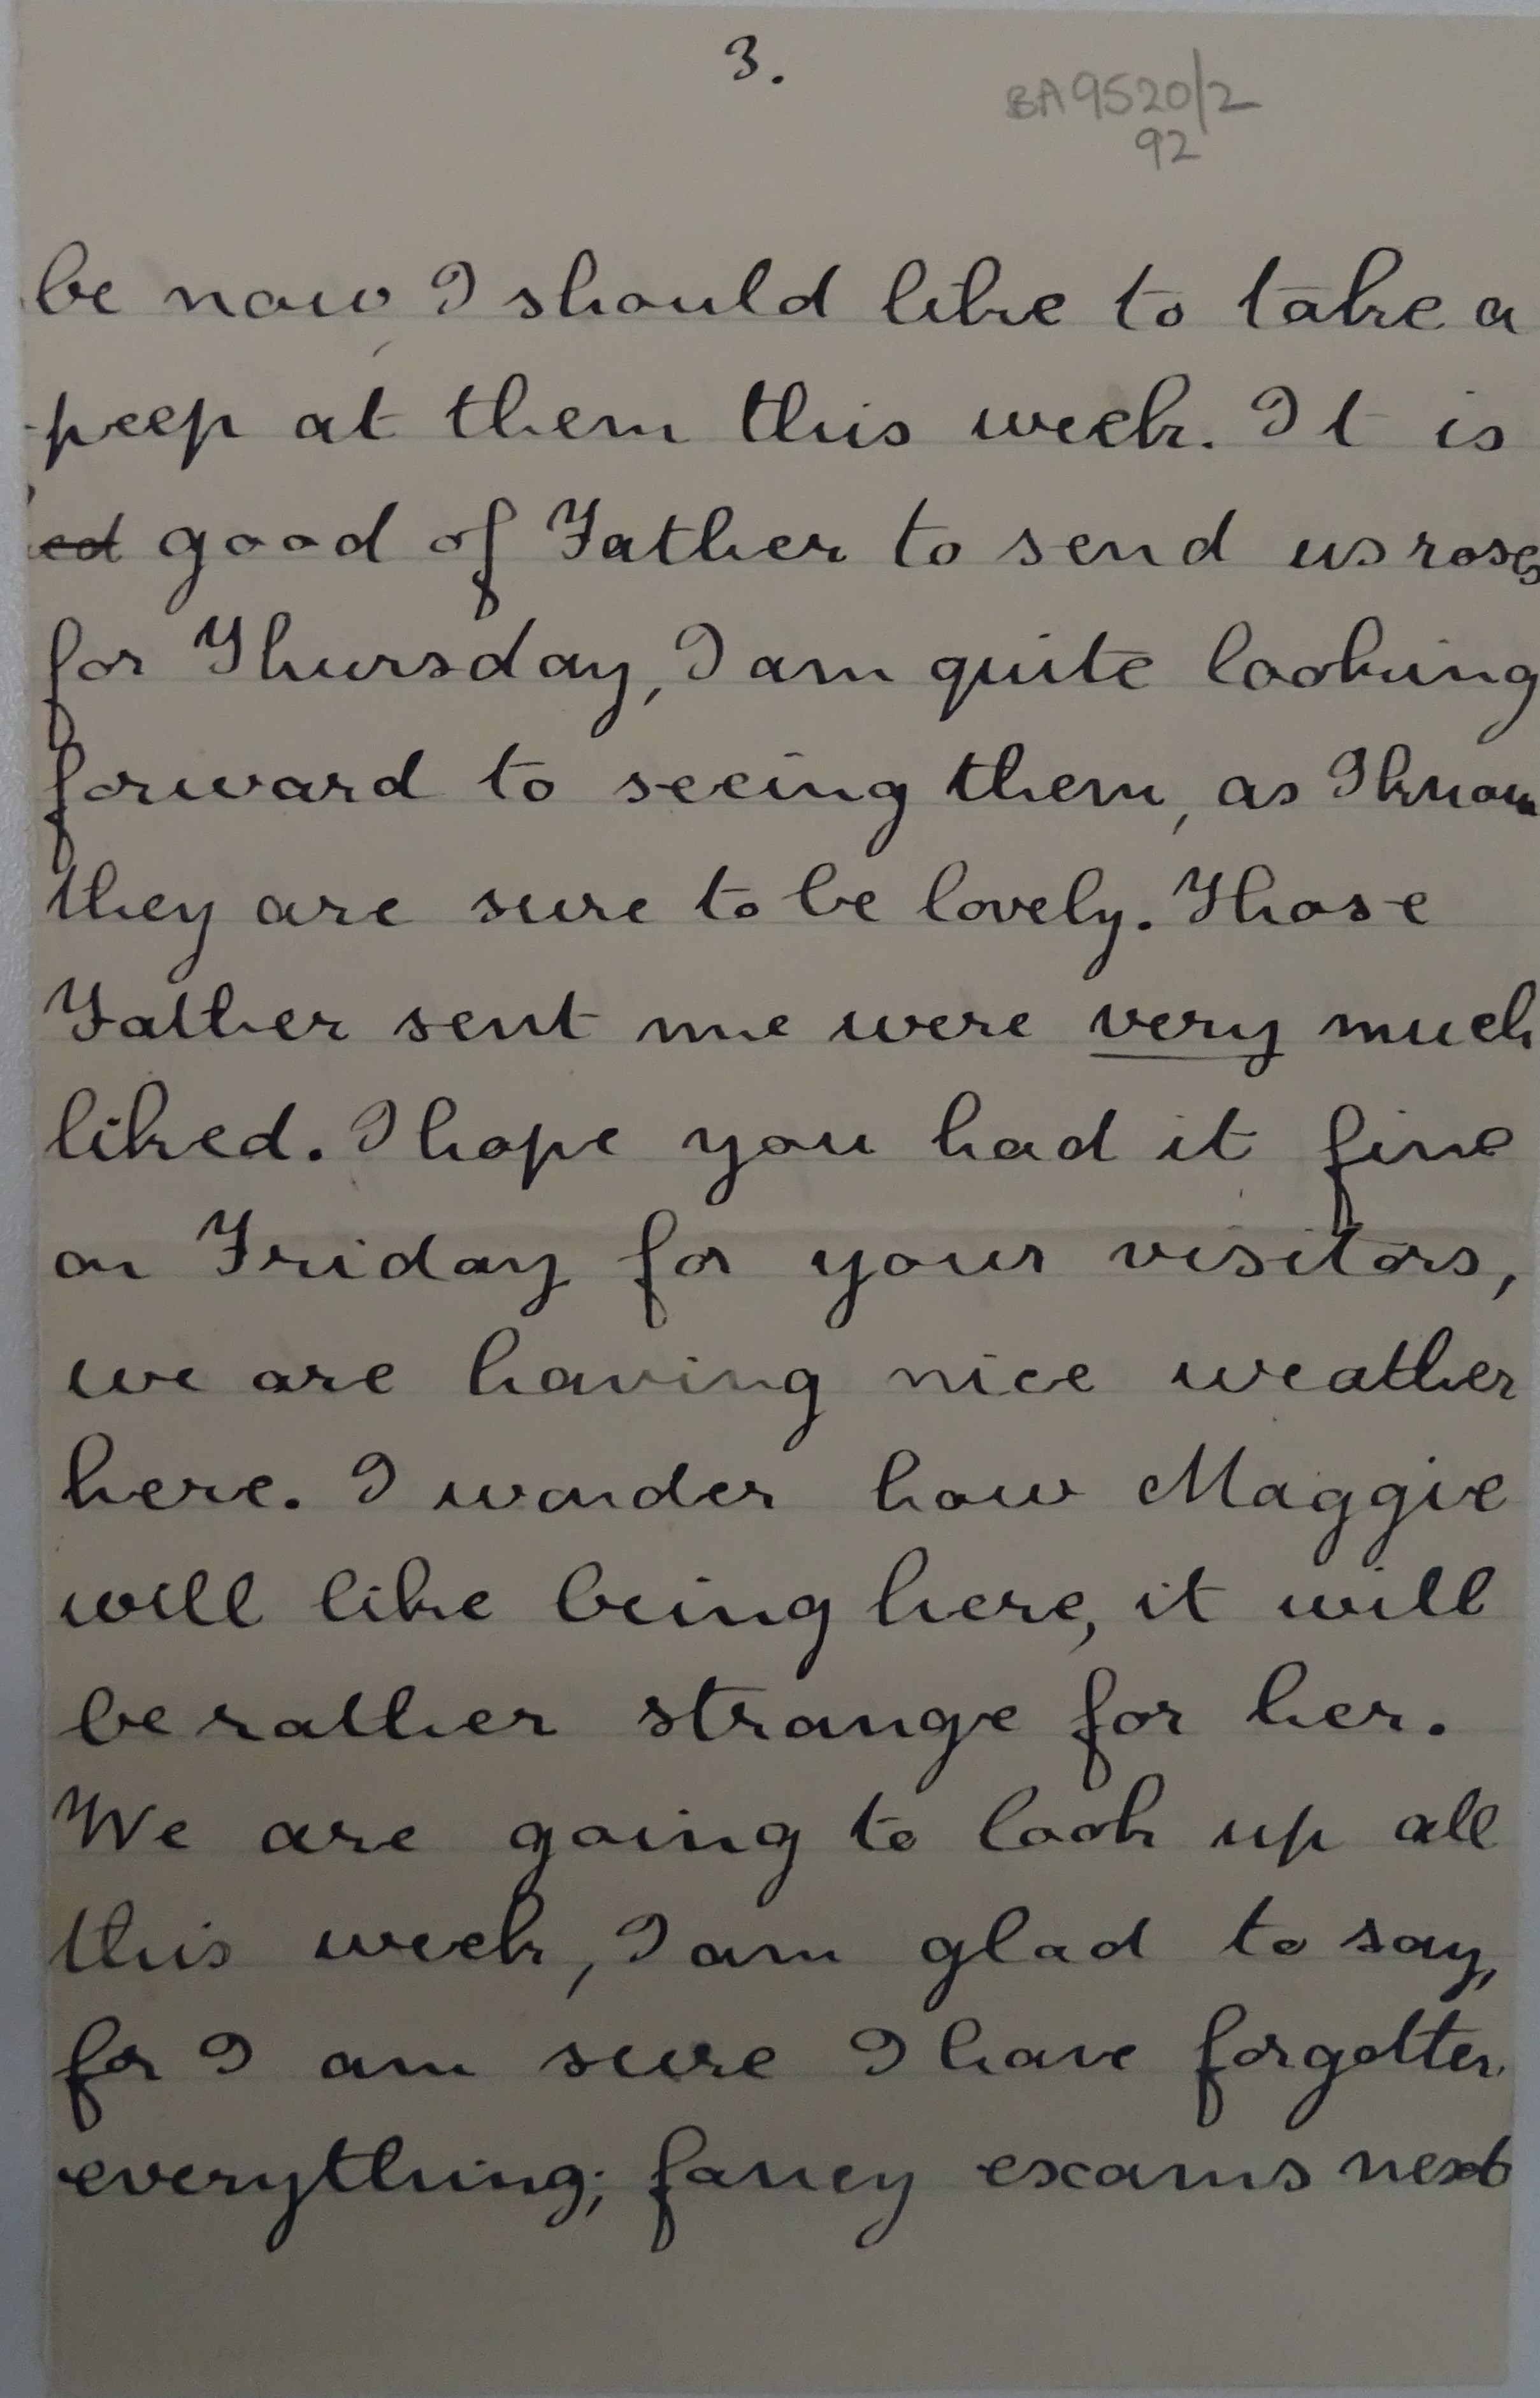 3.
BA9520/2
92
be now, I should like to take a
peep at them this week. It is
good of Father to send us roses
for Thursday, I am quite looking
forward to seeing them, as I know
they are sure to be lovely. Those
Father sent me were very much
liked. I hope you had it fine
on Friday for your visitors,
we are having nice weather
here. I wonder how Maggie
will like being here, it will
be rather strange for her.
We are going to look up all
this week, I am glad to say,
for I am sure I have forgotten
everything; fancy exams next